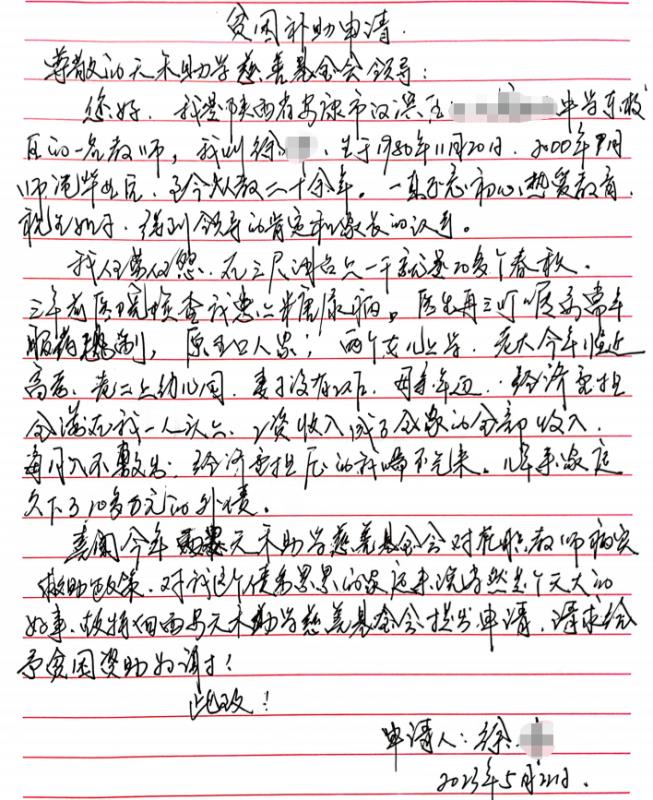 贫困补助申请.
尊敬的天禾助学慈善基金会领导:
您好,我是陕西省安康市汉滨区 中学东校
区的一名教师,我叫徐 ,生于1980年11月20日,2000年9月
师范毕业后,至今从教二十余年。一直不忘初心,热爱教育,
视生如子,得到领导的肯定和家长的认可。
我任劳任怨,在三尺讲台上一干就是20多个春秋。
三年前医院检查我患上糖尿病,医生再三叮嘱需常年
服药控制,原五口人家;两个女儿上学,老大今年临近
高考,老二上幼儿园,妻子没有工作,母亲年迈,经济重担
全落在我一人头上,工资收入成了全家的全部收入,
每月入不敷出;经济重担压的我喘不过来。几年来家庭
欠下了10多万元的外债。
喜闻今年 天禾助学慈善基金会对在职教师病灾
救助政策,对我这个债务累累的家庭来说当然是个天大的
好事,故特向西安天禾助学慈善基金会提出申请,请求给
予贫困资助为谢!
此致!
申请人:徐
2023年5月22日.